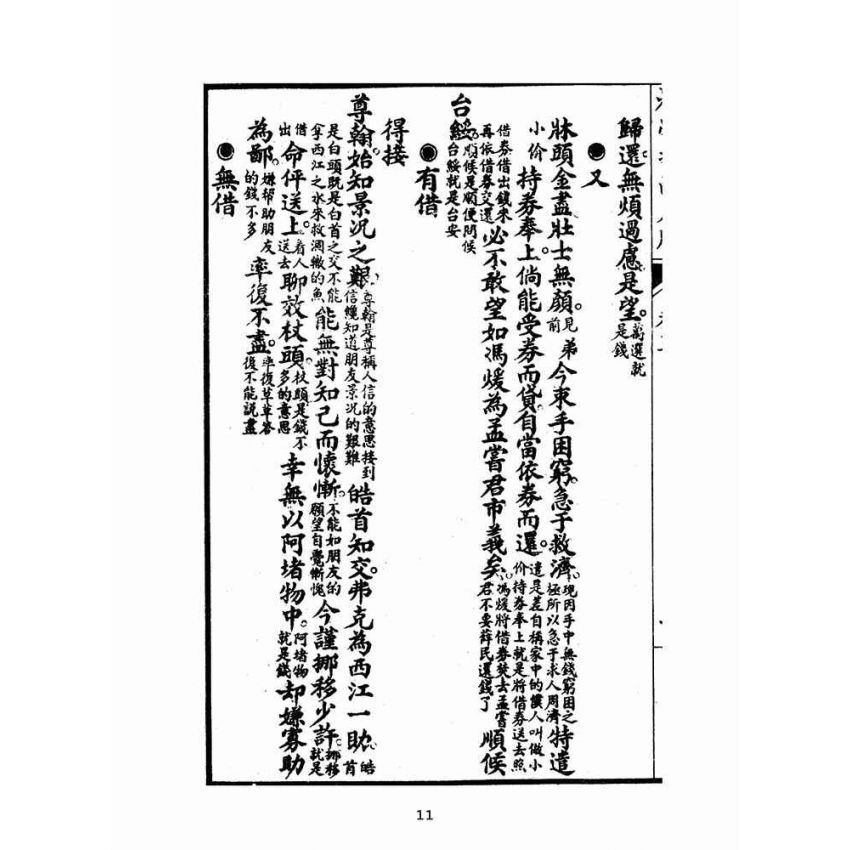 歸還。無煩過慮。是望。萬選就是錢
●又
牀頭金盡。壯士無顏。見前 弟今束手困窮。急于救濟。現因手中無錢窮困之極所以急于求人周濟 特遣
小价 持券奉上。倘能受券而貸。自當依券而還。遣是差自稱家中的僕人叫做小价持券奉上就是將借券送去照
借券借出錢來再依借券交還 必不敢望如馮煖為孟嘗君市義矣。馮煖將借券焚去孟嘗君不要薛民還錢了 順候
台綏。順候是順便問候台綏就是台安
●有借
得接
尊翰。始知景況之艱。尊翰是尊稱人信的意思接到信纔知道朋友景況的艱難 皓首知交。弗克為西江一助。皓首
是白頭既是白首之交不能拿西江之水來救涸轍的魚 能無對知己而懷慚。不能如朋友的願望自覺慚愧 今謹挪移少許。挪移就是
借出 命伻送上。着人送去 聊效杖頭。杖頭是錢不多的意思 幸無以阿堵物中。阿堵物就是錢 却嫌寡助
為鄙。嫌幫助朋友的錢不多 率復不盡。率復草草答復不能說盡
●無借
11